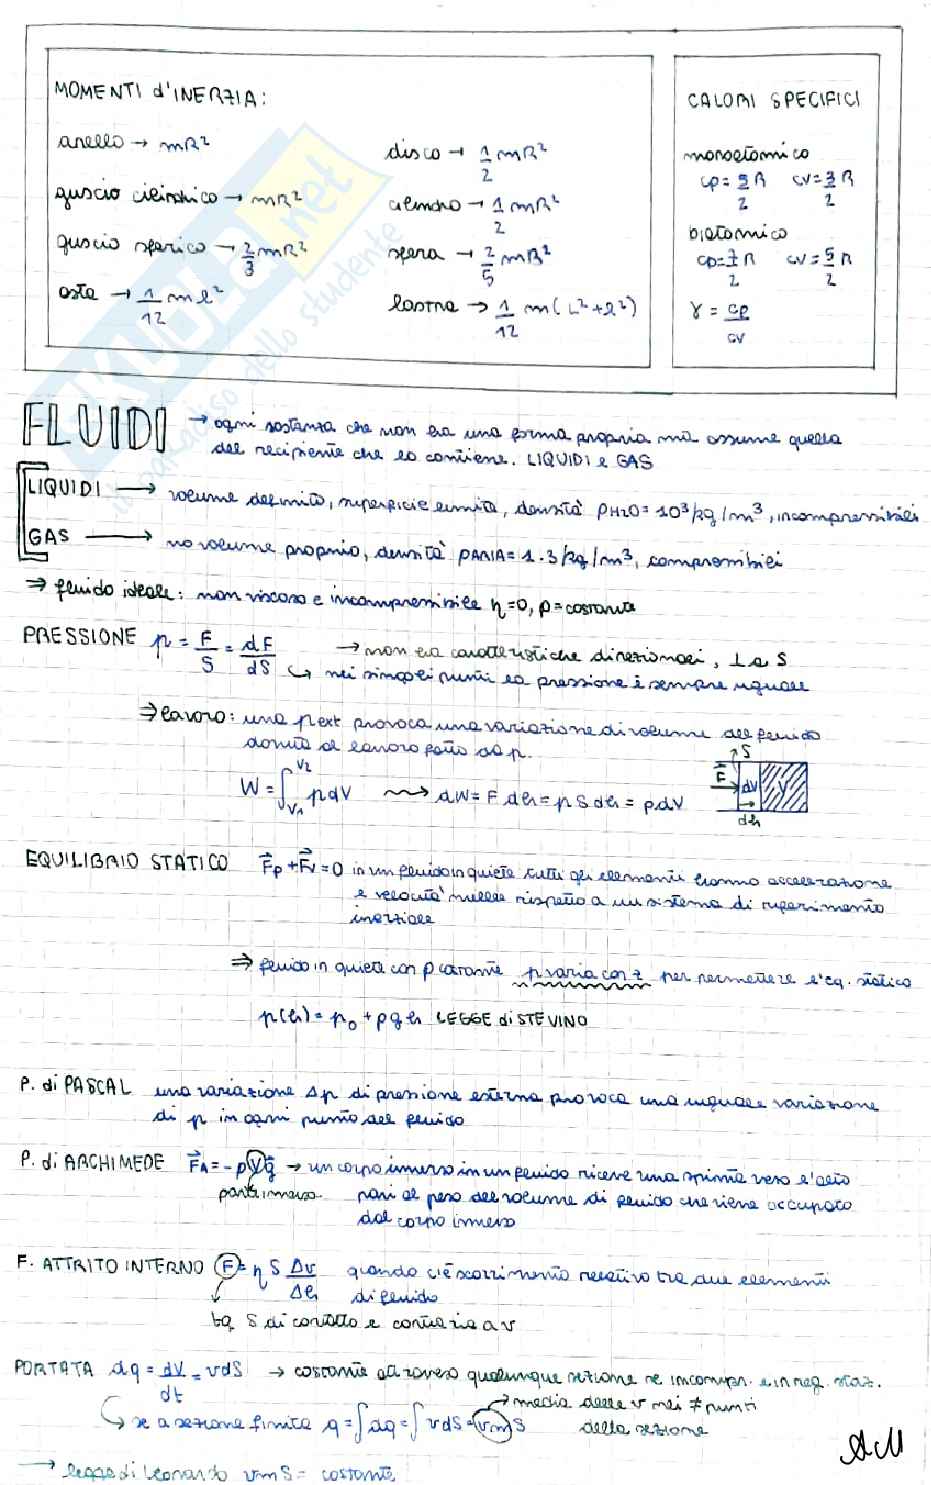 MOMENTI d'INERZIA:
anello → mR²
guscio cilindrico → mR²
guscio sferico → 2/3 mR²
asta → 1/12 m l²
disco → 1/2 mR²
cilindro → 1/2 mR²
sfera → 2/5 mR²
lastra → 1/12 m(L²+l²)
CALORI SPECIFICI
monoatomico
cp=5/2 R cv=3/2 R
biatomico
cp=7/2 R cv=5/2 R
γ = cp/cv
FLUIDI → ogni sostanza che non ha una forma propria ma assume quella
del recipiente che lo contiene. LIQUIDI e GAS
LIQUIDI → volume definito, superficie limite, densità ρH2O = 10³ kg/m³, incompressibili
GAS → no volume proprio, densità ρARIA = 1.3 kg/m³, comprimibili
⇒ fluido ideale: non viscoso e incompressibile η=0, ρ=costante
PRESSIONE p = F/S = dF/dS → non ha caratteristiche direzionali, ⊥ a S
↳ nei singoli punti la pressione è sempre uguale
⇒ lavoro: una p ext provoca una variazione di volume del fluido
dovuta al lavoro fatto da p.
W = ∫V1V2 pdV ⇝ dW = F dh = p S dh = pdV
S
F dV V
dh
EQUILIBRIO STATICO Fp + Fv = 0 in un fluido in quiete tutti gli elementi hanno accelerazione
e velocità nulle rispetto a un sistema di riferimento
inerziale
⇒ fluido in quiete con ρ costante p varia con z per permettere l'eq. statico
p(h) = p0 + ρgh LEGGE di STEVINO
P. di PASCAL una variazione Δp di pressione esterna provoca una uguale variazione
di p in ogni punto del fluido
P. di ARCHIMEDE FA = -ρVg → un corpo immerso in un fluido riceve una spinta verso l'alto
parte immersa pari al peso del volume di fluido che viene occupato
dal corpo immerso
F. ATTRITO INTERNO F = η S Δv/Δh quando c'è scorrimento relativo tra due elementi
di fluido
tg S di contatto e contraria a v
PORTATA dq = dV/dt = vdS → costante attraverso qualunque sezione se incompr. e in reg. staz.
→ media delle v nei ≠ punti
↳ se a sezione finita q = ∫dq = ∫vdS = vmS della sezione
→ legge di Leonardo vmS = costante
AM
skuola.net
il paradiso dello studente